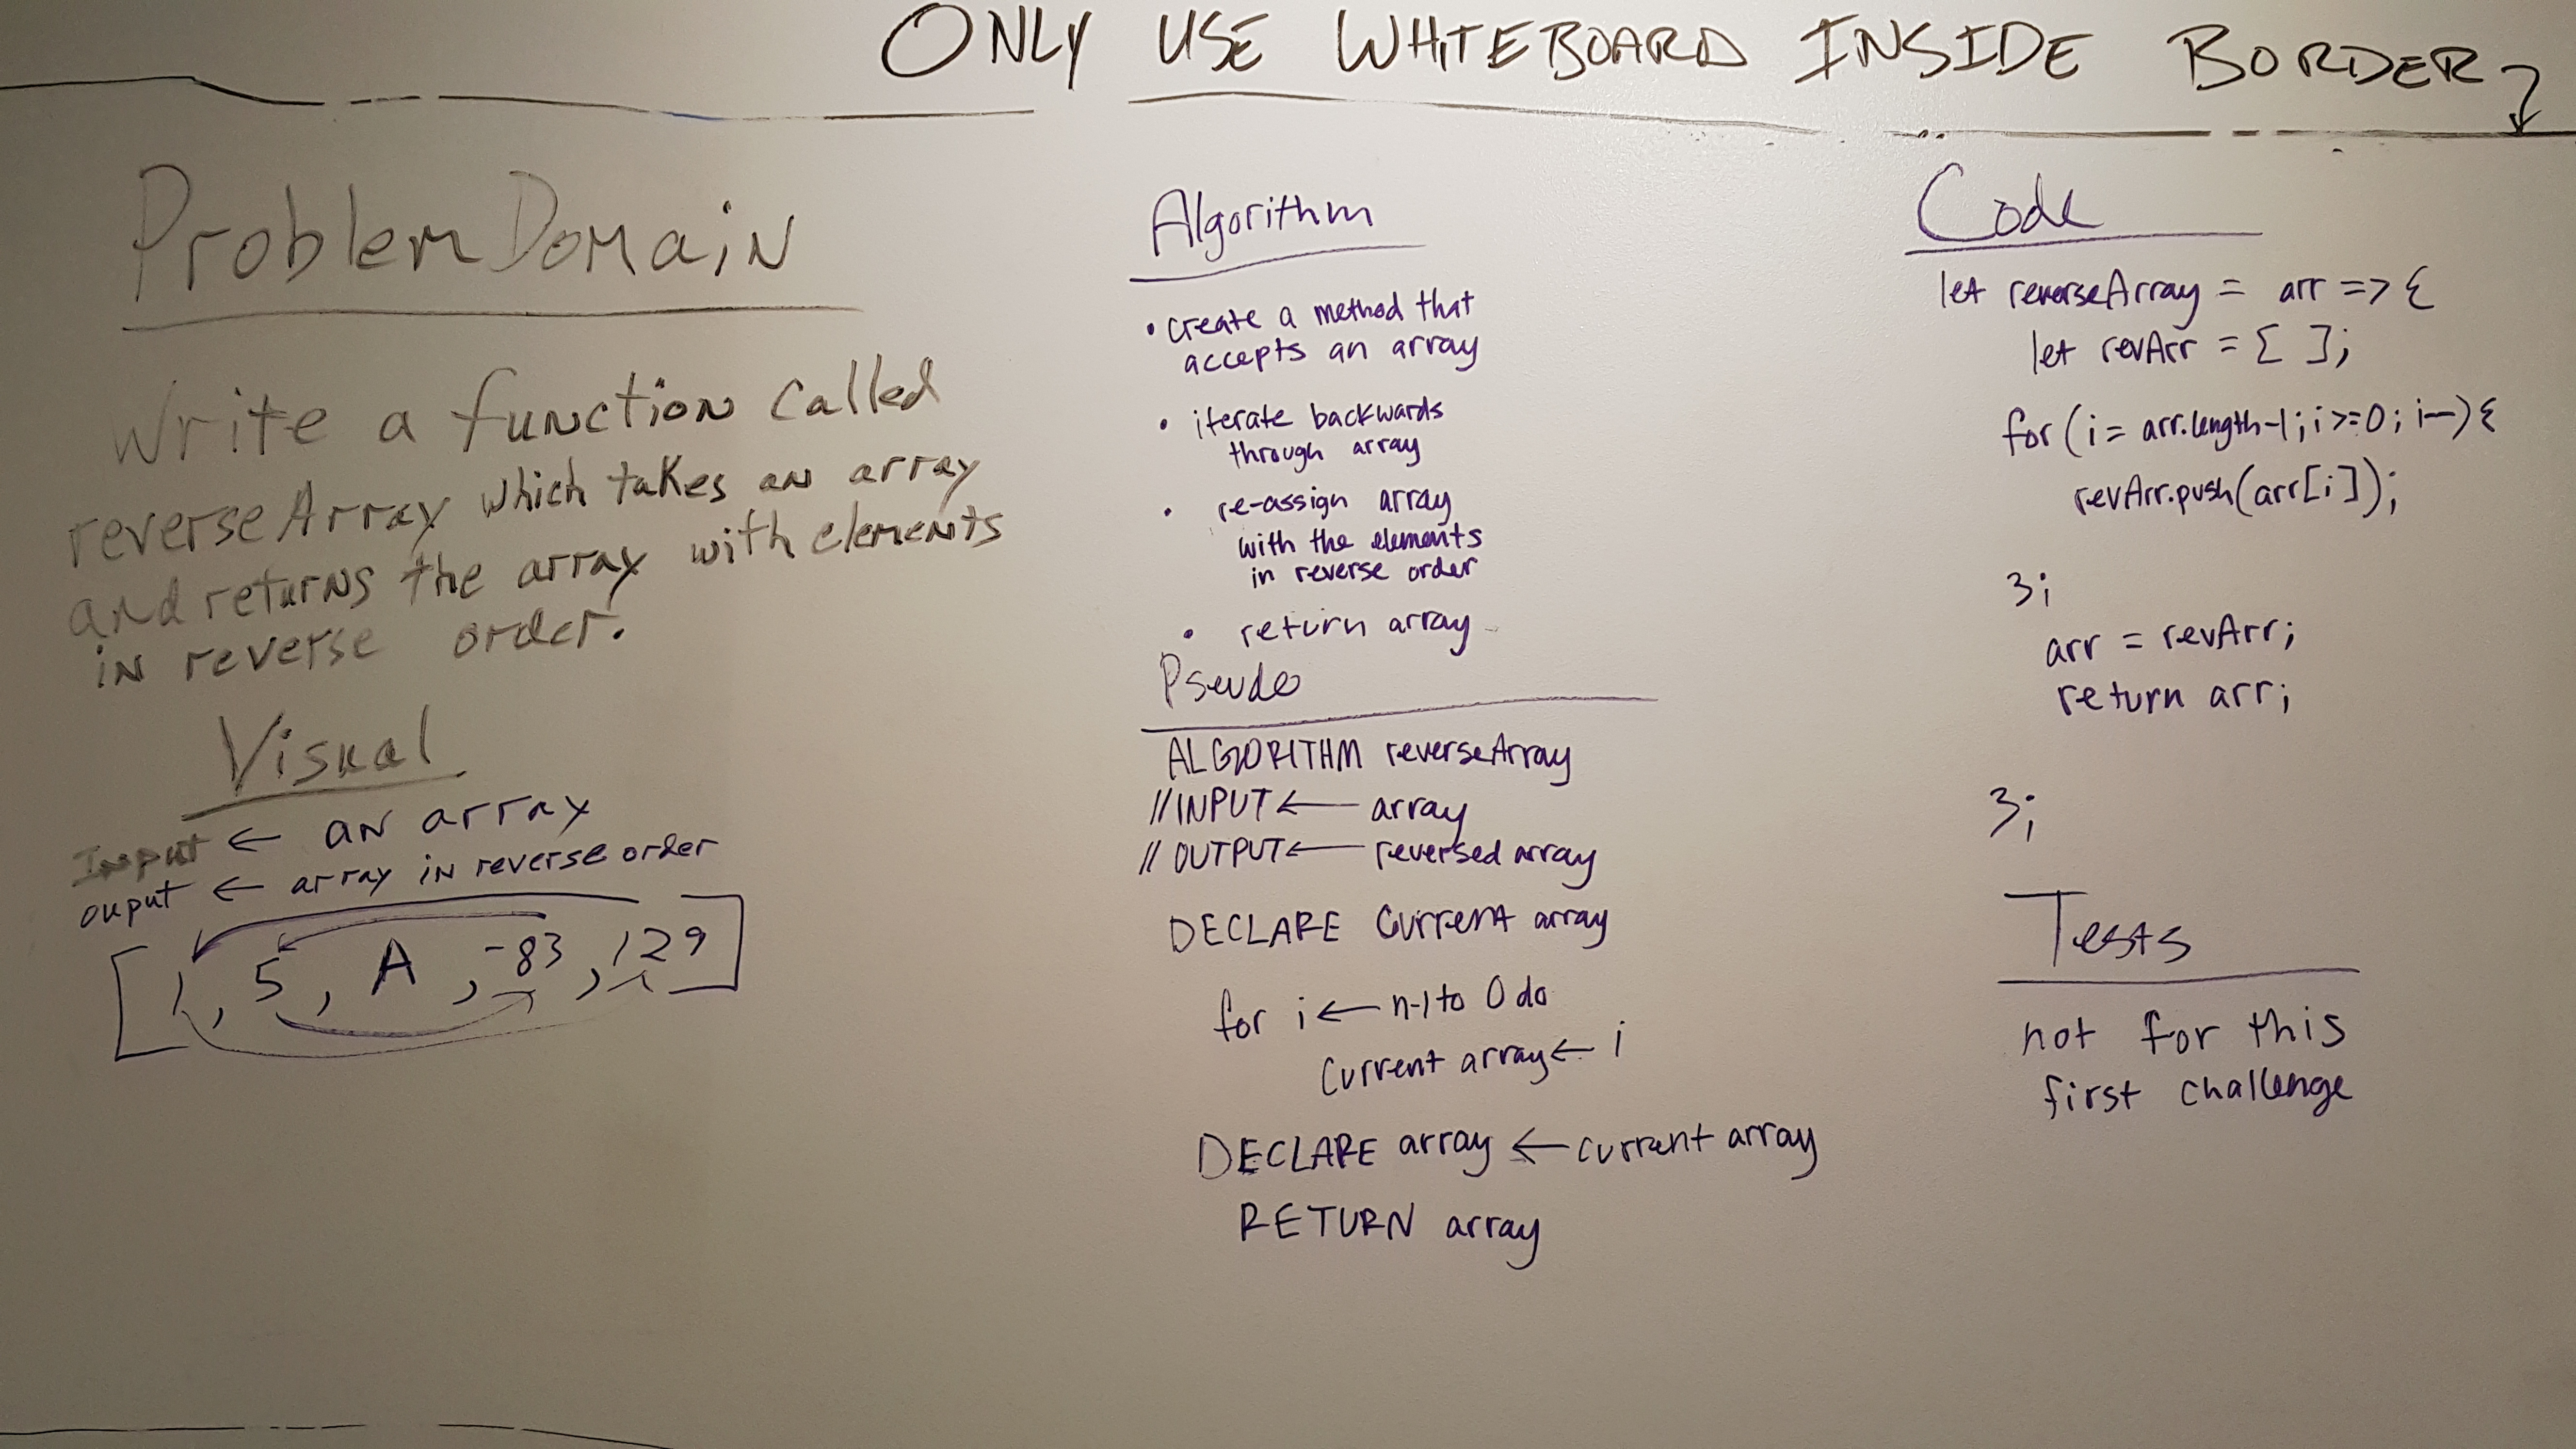 ONLY USE WHITEBOARD INSIDE BORDER
Problem Domain
Write a function called
reverseArray which takes an array
and returns the array with elements
in reverse order.
Visual
Input ← an array
ouput ← array in reverse order
[1, 5, A, -83, 129]
Algorithm
• create a method that
accepts an array
• iterate backwards
through array
• re-assign array
with the elements
in reverse order
• return array
Pseudo
ALGORITHM reverseArray
//INPUT ← array
// OUTPUT ← reversed array
DECLARE Current array
for i ← n-1 to 0 do
Current array ← i
DECLARE array ← current array
RETURN array
Code
let reverseArray = arr => {
let revArr = [ ];
for (i = arr.length-1; i>=0; i--) {
revArr.push(arr[i]);
};
arr = revArr;
return arr;
};
Tests
not for this
first challenge